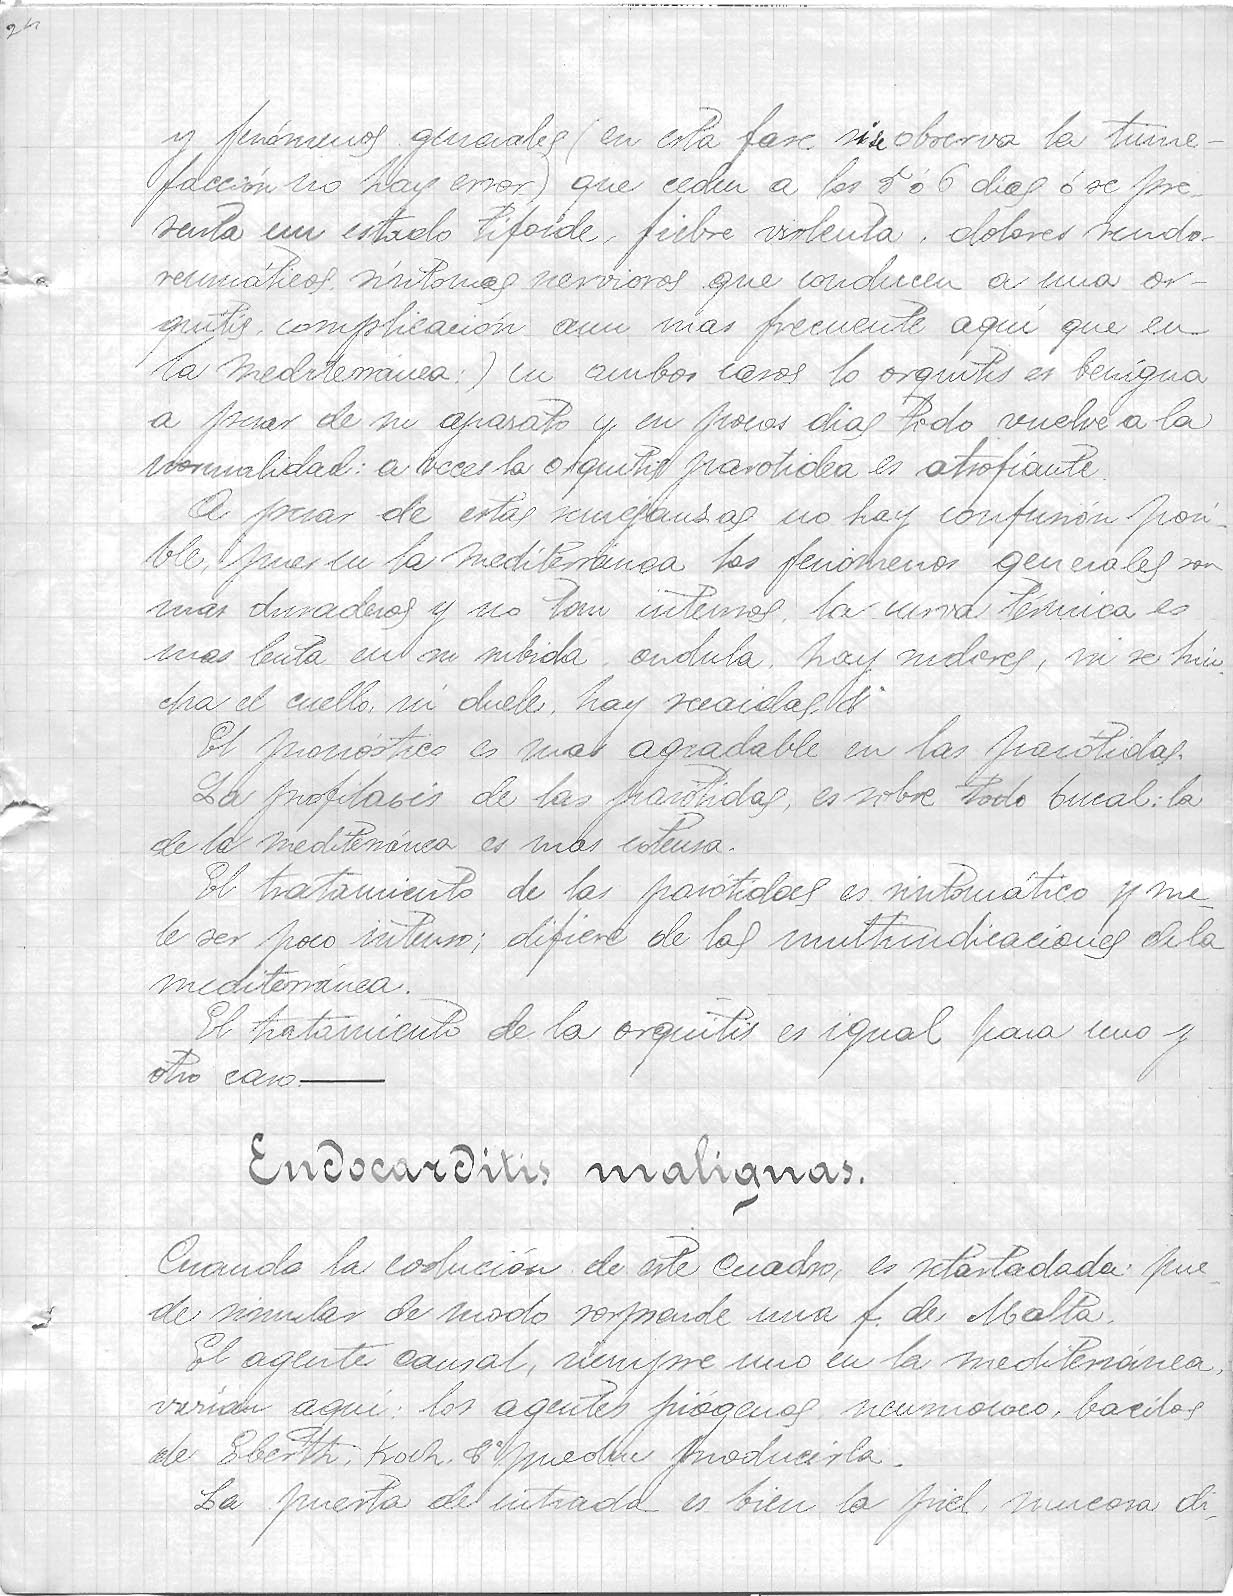 24
y fenómenos generales (en esta fase si se observa la tume-
facción no hay error) que ceden a los 5 ó 6 dias ó se pre-
senta un estado tifoide, fiebre violenta, dolores seudo-
reumáticos, síntomas nerviosos que conducen a una or-
quitis, complicación aun mas frecuente aquí que en
la mediterránea:) en ambos casos la orquitis es benigna
a pesar de su aparato y en pocos dias todo vuelve a la
normalidad: a veces la orquitis parotidea es atrofiante.
A pesar de estas semejanzas no hay confusión posi-
ble, pues en la mediterránea los fenómenos generales son
mas duraderos y no tan intensos, la curva térmica es
mas lenta en su subida, ondula, hay sudores, ni se hin-
cha el cuello, ni duele, hay recaidas, &ª
El pronóstico es mas agradable en las parótidas.
La profilaxis de las parótidas, es sobre todo bucal: la
de la mediterránea es mas extensa.
El tratamiento de las parótidas es sintomático y sue-
le ser poco intenso; difiere de las multiindicaciones de la
mediterránea.
El tratamiento de la orquitis es igual para uno y
otro caso.
Endocarditis malignas.
Cuando la evolución de este cuadro, es retardada: pue-
de simular de modo una f. de Malta.
El agente causal, siempre uno en la mediterránea,
varian aquí: los agentes piógenos, neumococo, bacilos
de Eberth, Koch, &ª pueden producirla.
La puerta de entrada es bien la piel, mucosa di-